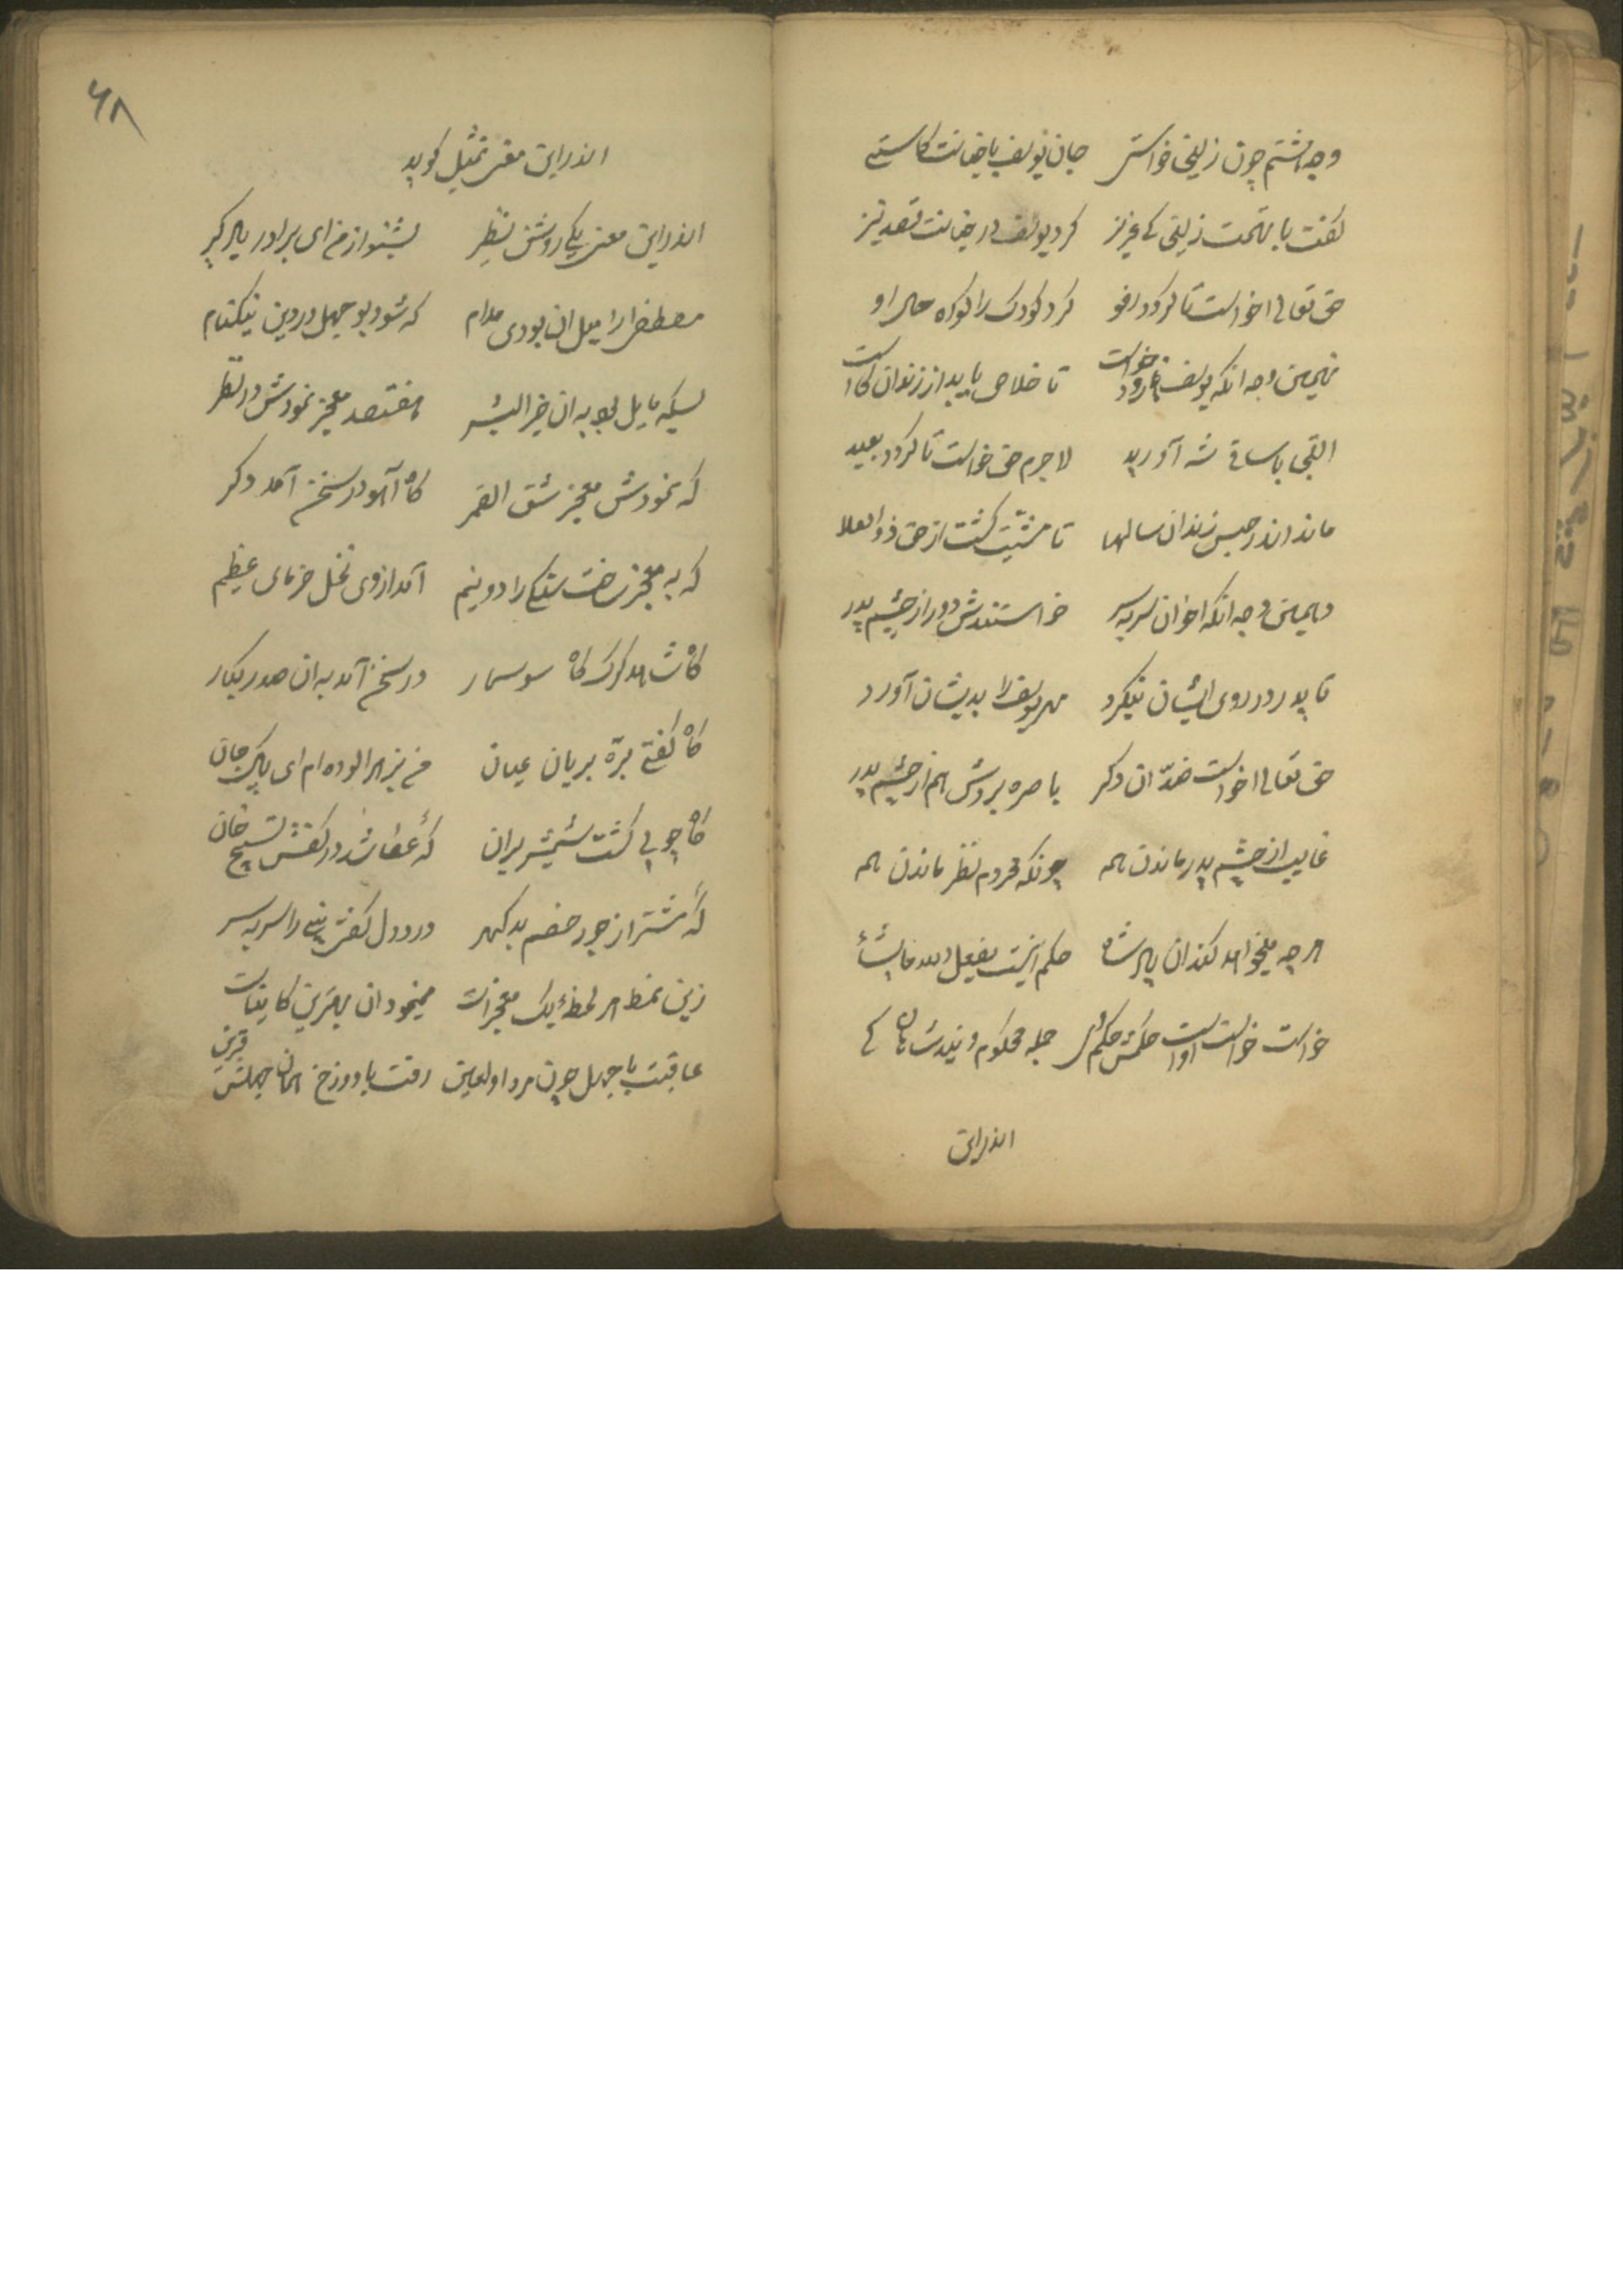 وجه هشتم چون زلیخی خواستی جان یوسف با خیانت کاستی
گفت با تهمت زلیخی کای عزیز کرد یوسف در خیانت قصد تیز
حق تعالی خواست تا گردد رفو کرد کودک را گواه حال او
نهمین وجه انکه یوسف خواست تا خلاص یابد از زندان
التجی با ساقی شه آورید لاجرم حق خواست تا گردد بعید
ماند اندر حبس زندان سالها تا مشیّت گشت از حق ذو العلا
دهمین وجه انکه اخوان سربه سر خواستندش دور از چشم پدر
تا پدر در روی ایشان بنگرد مهر یوسف را بدیشان آورد
حق تعالی خواست ضدّ ان دگر باصره بردش هم از چشم پدر
غایب از چشم پدر ماندن همه چونکه محروم نظر ماندن همه
هر چه میخواهد کند ان پادشاه حکم اینست یفعل الله مایشاء
خواست خواست اواست حکمش حکم جمله محکوم و بند شاهان
اندراین
۶۸
اندراین معنی تمثیل گوید
اندراین معنی یکی روشن نظیر بشنو از من ای برادر یاد گیر
مصطفی را میل ان بودی مدام که شود بوجهل در دین نیکنام
بسکه مایل بود به ان خیر البشر هفتصد معجز نمودش در نظر
که نمودش معجز شق القمر گاه آهو در سخن آمد دگر
که به معجز ساخت سنگی را دو نیم آمد از وی نخل خرمای عظیم
گاه شاهد گرگ گاه سوسمار در سخن آمد به ان صدر کبار
گاه گفتی برّه بریان عیان من بزهر الوده ام ای پاک جان
گاه چوبی گشت شمشیر بران گه عصا شد در کفش تسبیح خان
گه شتر از جور خصم بد گهر درد دل گفتی نبی را سربه سر
زین نمط هر لحظه یک معجزات مینمود ان بهترین کاینات
عاقبت با جهل چون مرد او لعین رفت با دوزخ همان جهلش قرین